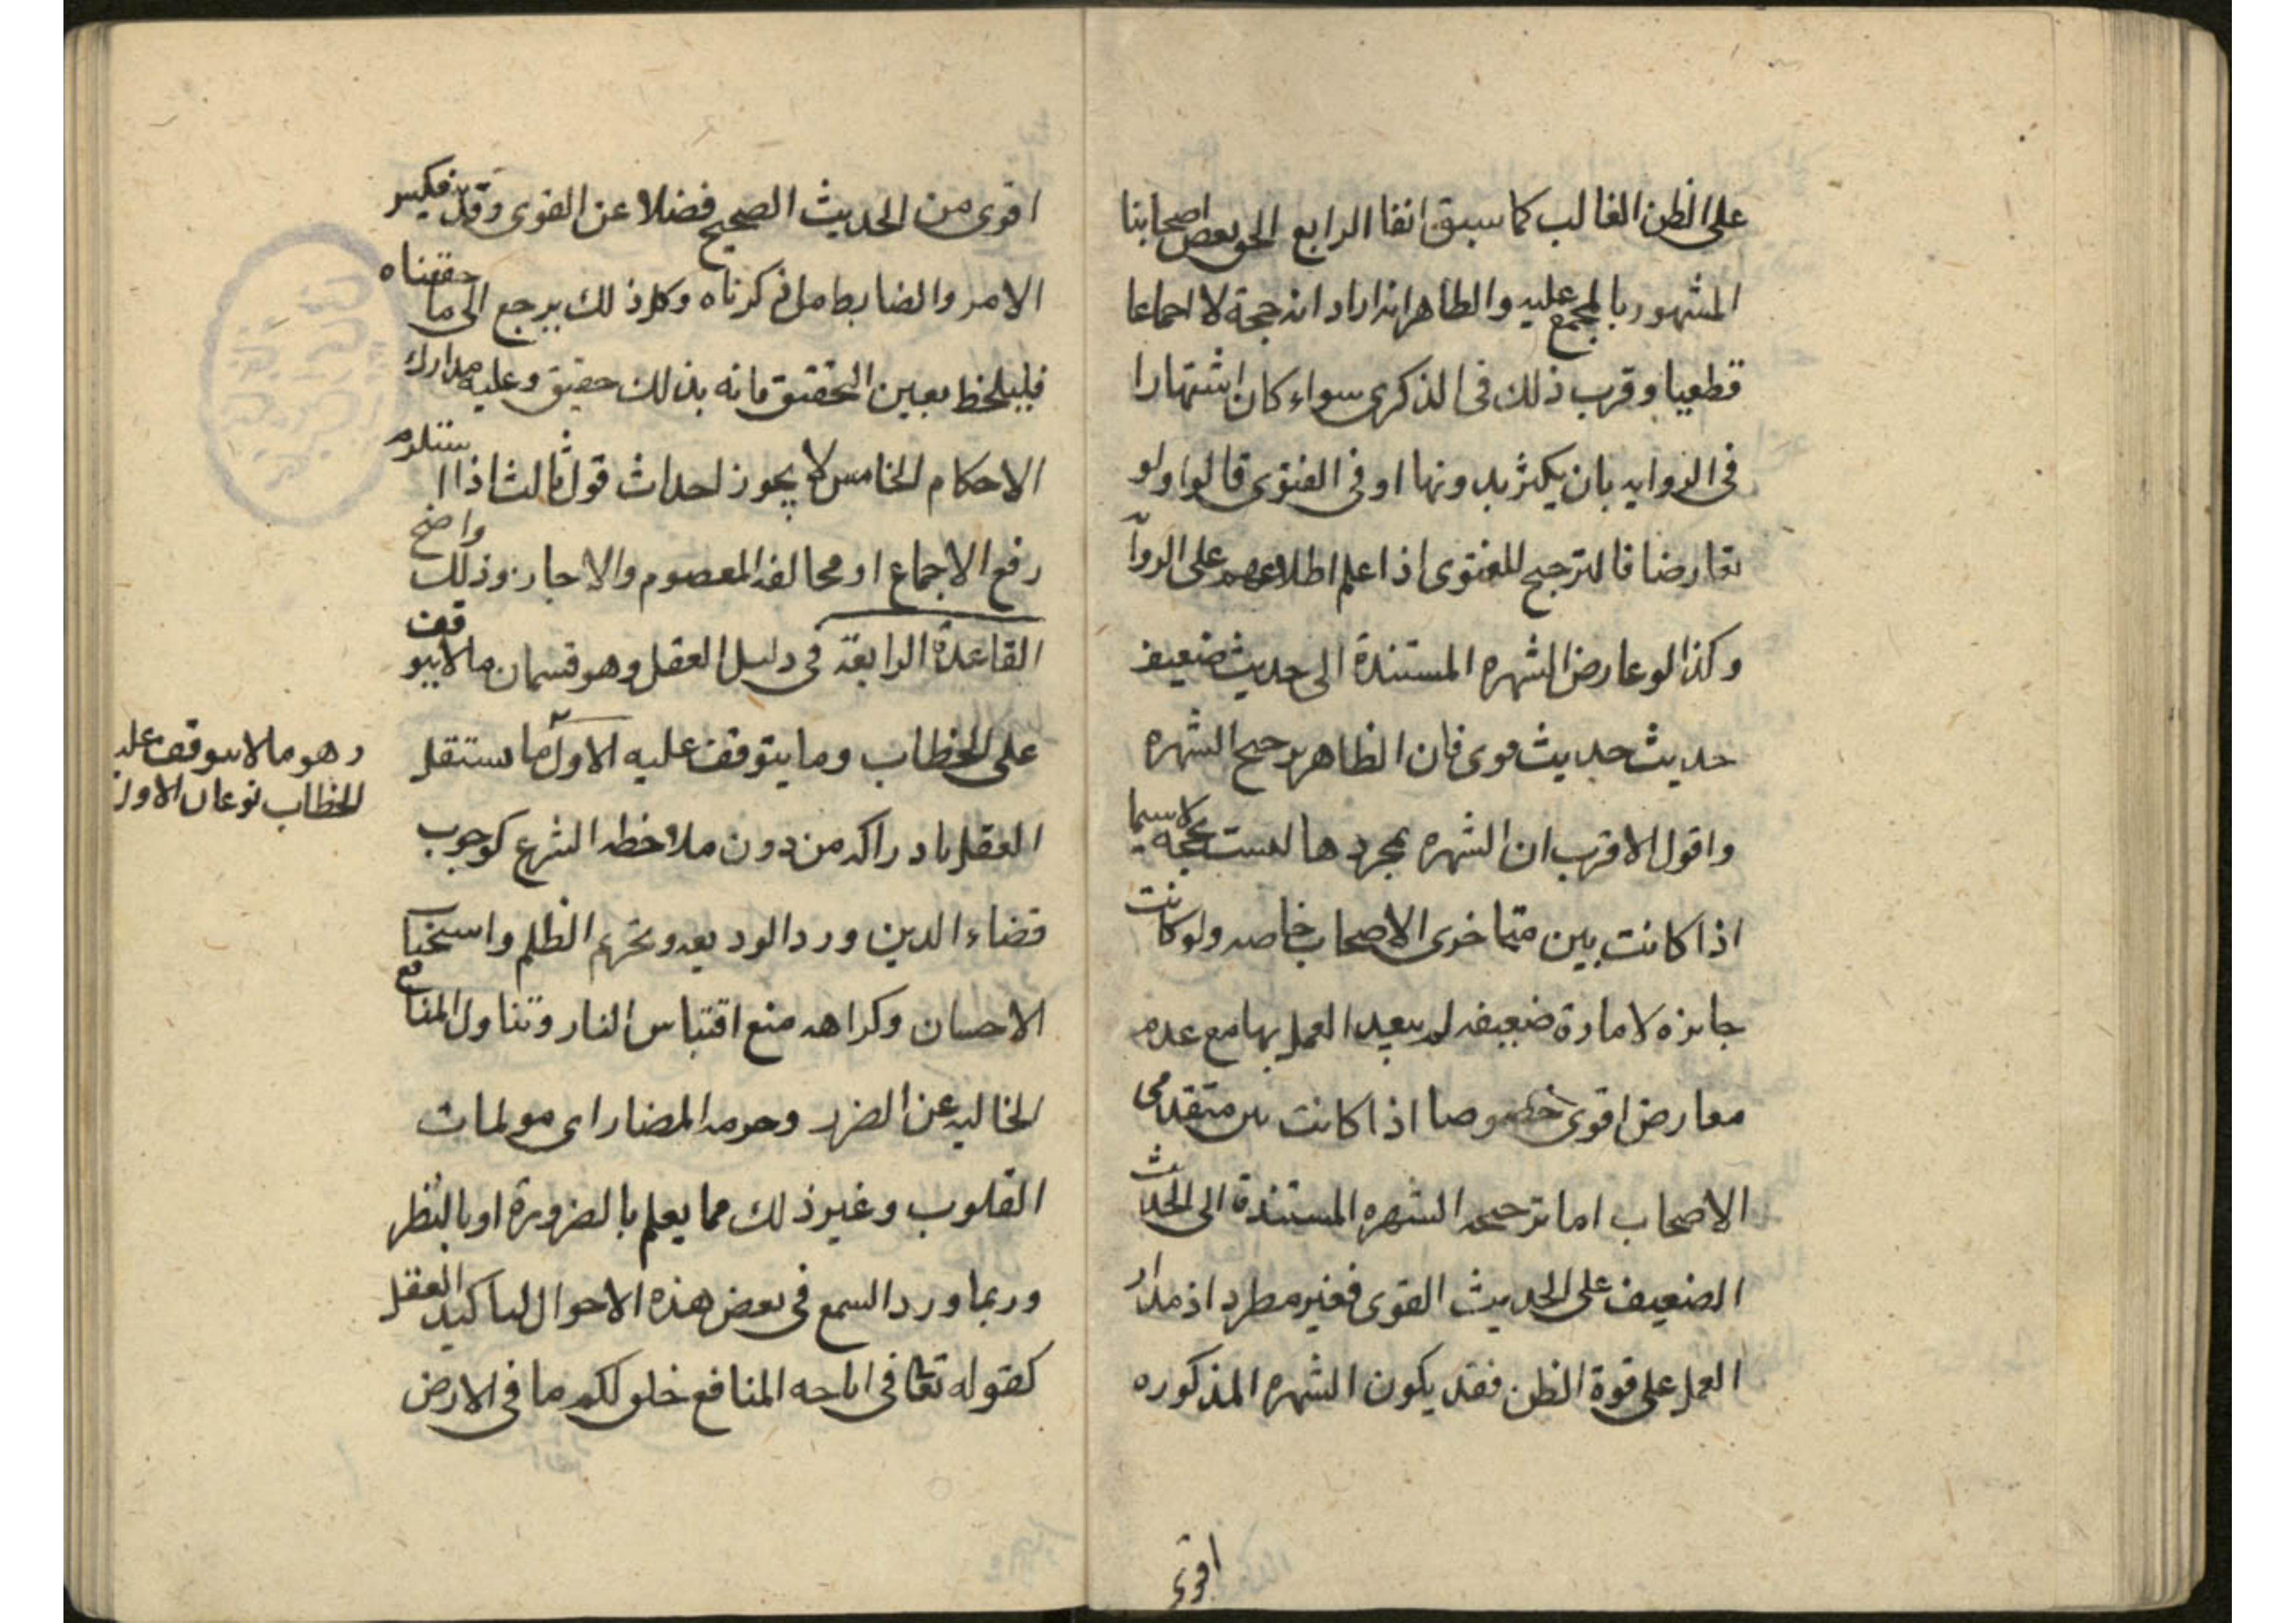 على الظن الغالب كما سبق انفا الرابع الحق بعض اصحابنا
المشهور بالمجمع عليه والظاهر انه اراد انه حجة لا اجماعا
قطعيا وقرب ذلك فى الذكرى سواء كان اشتهارا
فى الروايه بان يكثر بدونها او فى الفتوى قالوا ولو
تعارضا فالترجيح للفتوى اذا علم اطلاعهم على الرواية
وكذا لو عارض الشهره المستندة الى حديث ضعيف
حديث حديث قوى فان الظاهر ترجيح الشهره
واقول الاقرب ان الشهره بمجردها ليست بحجه لاسيما
اذا كانت بين متاخرى الاصحاب خاصه ولو كانت
جابزه لامارة ضعيفه لم يبعد العمل بها مع عدم
معارض اقوى خصوصا اذا كانت بين متقدمى
الاصحاب اما ترجيح الشهره المستندة الى الحديث
الضعيف على الحديث القوى فغير مطرد اذ مدار
العمل على قوة الظن فقد يكون الشهره المذكوره
اقوى
اقوى من الحديث الصحيح فضلا عن القوى وقد ينعكس
الامر والضابط ما ذكرناه وكل ذلك يرجع الى ما حققناه
فليلحظ بعين التحقيق فانه بذلك حقيق وعليه مدارك
الاحكام الخامس لا يجوز احداث قول ثالث اذا استلزم
رفع الاجماع او مخالفه المعصوم والا جاز وذلك واضح
القاعدة الرابعة فى دليل العقل وهو قسمان ما لا يتوقف
على الخطاب وما يتوقف عليه الاول ما يستقل
العقل بادراكه من دون ملاحظه الشرع كوجوب
قضاء الدين ورد الوديعه وتحريم الظلم واستحباب
الاحسان وكراهه منع اقتباس النار وتناول المنافع
الخاليه عن الضرر وحرمه المضار اى مولمات
القلوب وغير ذلك مما يعلم بالضرورة او بالنظر
وربما ورد السمع فى بعض هذه الاحوال لتاكيد العقل
كقوله تعا فى اباحه المنافع خلق لكم ما فى الارض
وهو ما لا يتوقف على
الخطاب نوعان الاول